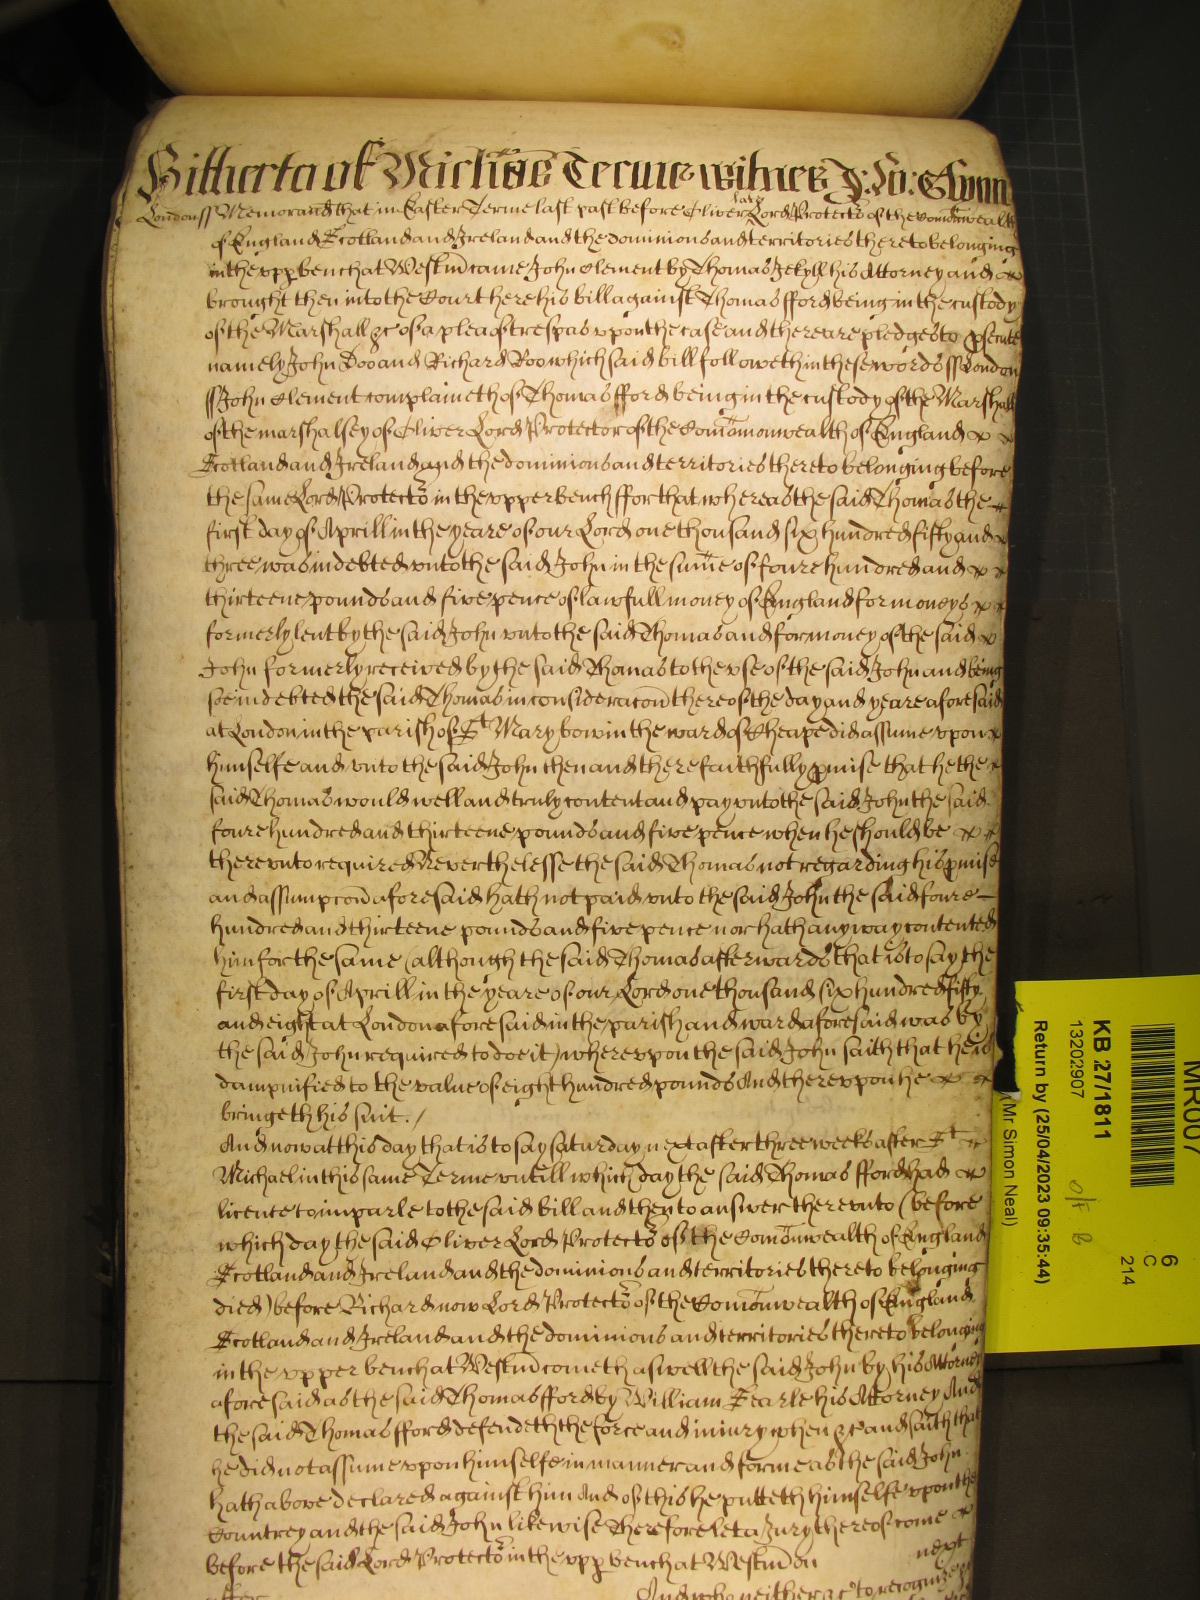 Hitherto of Mich͠as Terme witnes J: Jo: Glynn
London ss Memorand that in Easter Terme last past before Oliver late Lord Protector of the Comonwealth
of England Scotland and Ireland and the dominions and territories thereto belonging
in the upp bench at Westm̄ came John Clement by Thomas Jekyll his Attorney and
brought then into the Court there his bill against Thomas fford being in the custody
of the Marshall &c of a plea of trespas vpon the case and there are pledges to psecute
namely John Doo and Richard Roo which said bill followeth in these words ss London
ss John Clement complaineth of Thomas fford being in the custody of the Marshall
of the marshalsey of Oliver Lord Protector of the Com̄omonwealth of England
Scotland and Ireland and the dominions and territories thereto belonging before
the same Lord Protector in the vpper bench ffor that whereas the said Thomas the
first day of Aprill in the yeare of our Lord one thousand six hundred fifty and
three was indebted vnto the said John in the sum̄e of foure hundred and
thirteene pounds and five pence of lawfull money of England for moneys
formerly lent by the said John vnto the said Thomas and for money of the said
John formerly received by the said Thomas to the vse of the said John and being
soe indebted the said Thomas in consideracon̄ thereof the day and yeare aforesaid
at London in the parish of St Mary bow in the ward of Cheape did assume vpon
himselfe and vnto the said John then and there faithfully pmise that he the
said Thomas would well and truly content and pay vnto the said John the said
foure hundred and thirteene pounds and five pence when he should be
therevnto required Neverthelesse the said Thomas not regarding his pmise
and assumpcon̄ aforesaid hath not paid vnto the said John the said foure
hundred and thirteene pounds and five pence nor hath any way contented
him for the same (although the said Thomas afterwards that is to say the
first day of Aprill in the yeare of our Lord one thousand six hundred fifty
and eight at London aforesaid in the parish and ward aforesaid was by
the said John required to doe it) wherevpon the said John saith that he is
dampnified to the value of eight hundred pounds And therevpon he
bringeth his suit. /
And now at this day that is to say Saturday next after three weeks after St
Michael in this same Terme vntill which day the said Thomas fford had
licence to imparle to the said bill and then to answer therevnto (before
which day the said Oliver Lord Protector of the Com̄onwealth of England
Scotland and Ireland and the dominions and territories thereto belonging
died) before Richard now Lord Protector of the Com̄onwealth of England
Scotland and Ireland and the dominions and territories thereto belonging
in the vpper bench at Westm̄ cometh aswell the said John by his Attorney
aforesaid as the said Thomas fford by William Searle his Attorney And
the said Thomas fford defendeth the force and injury when &c and saith that
he did not assume vpon himselfe in manner and forme as the said John
hath above declared against him And of this he putteth himselfe vpon the
Countrey and the said John likewise Therefore let a Jury thereof come
before the said Lord Protector in the vpp bench at Westm̄ on next
after And who neither &c to recognize
MR007
6
C
214
KB 27/1811
13202907
Return by (25/04/2023 09:35:44)
(Mr Simon Neal)